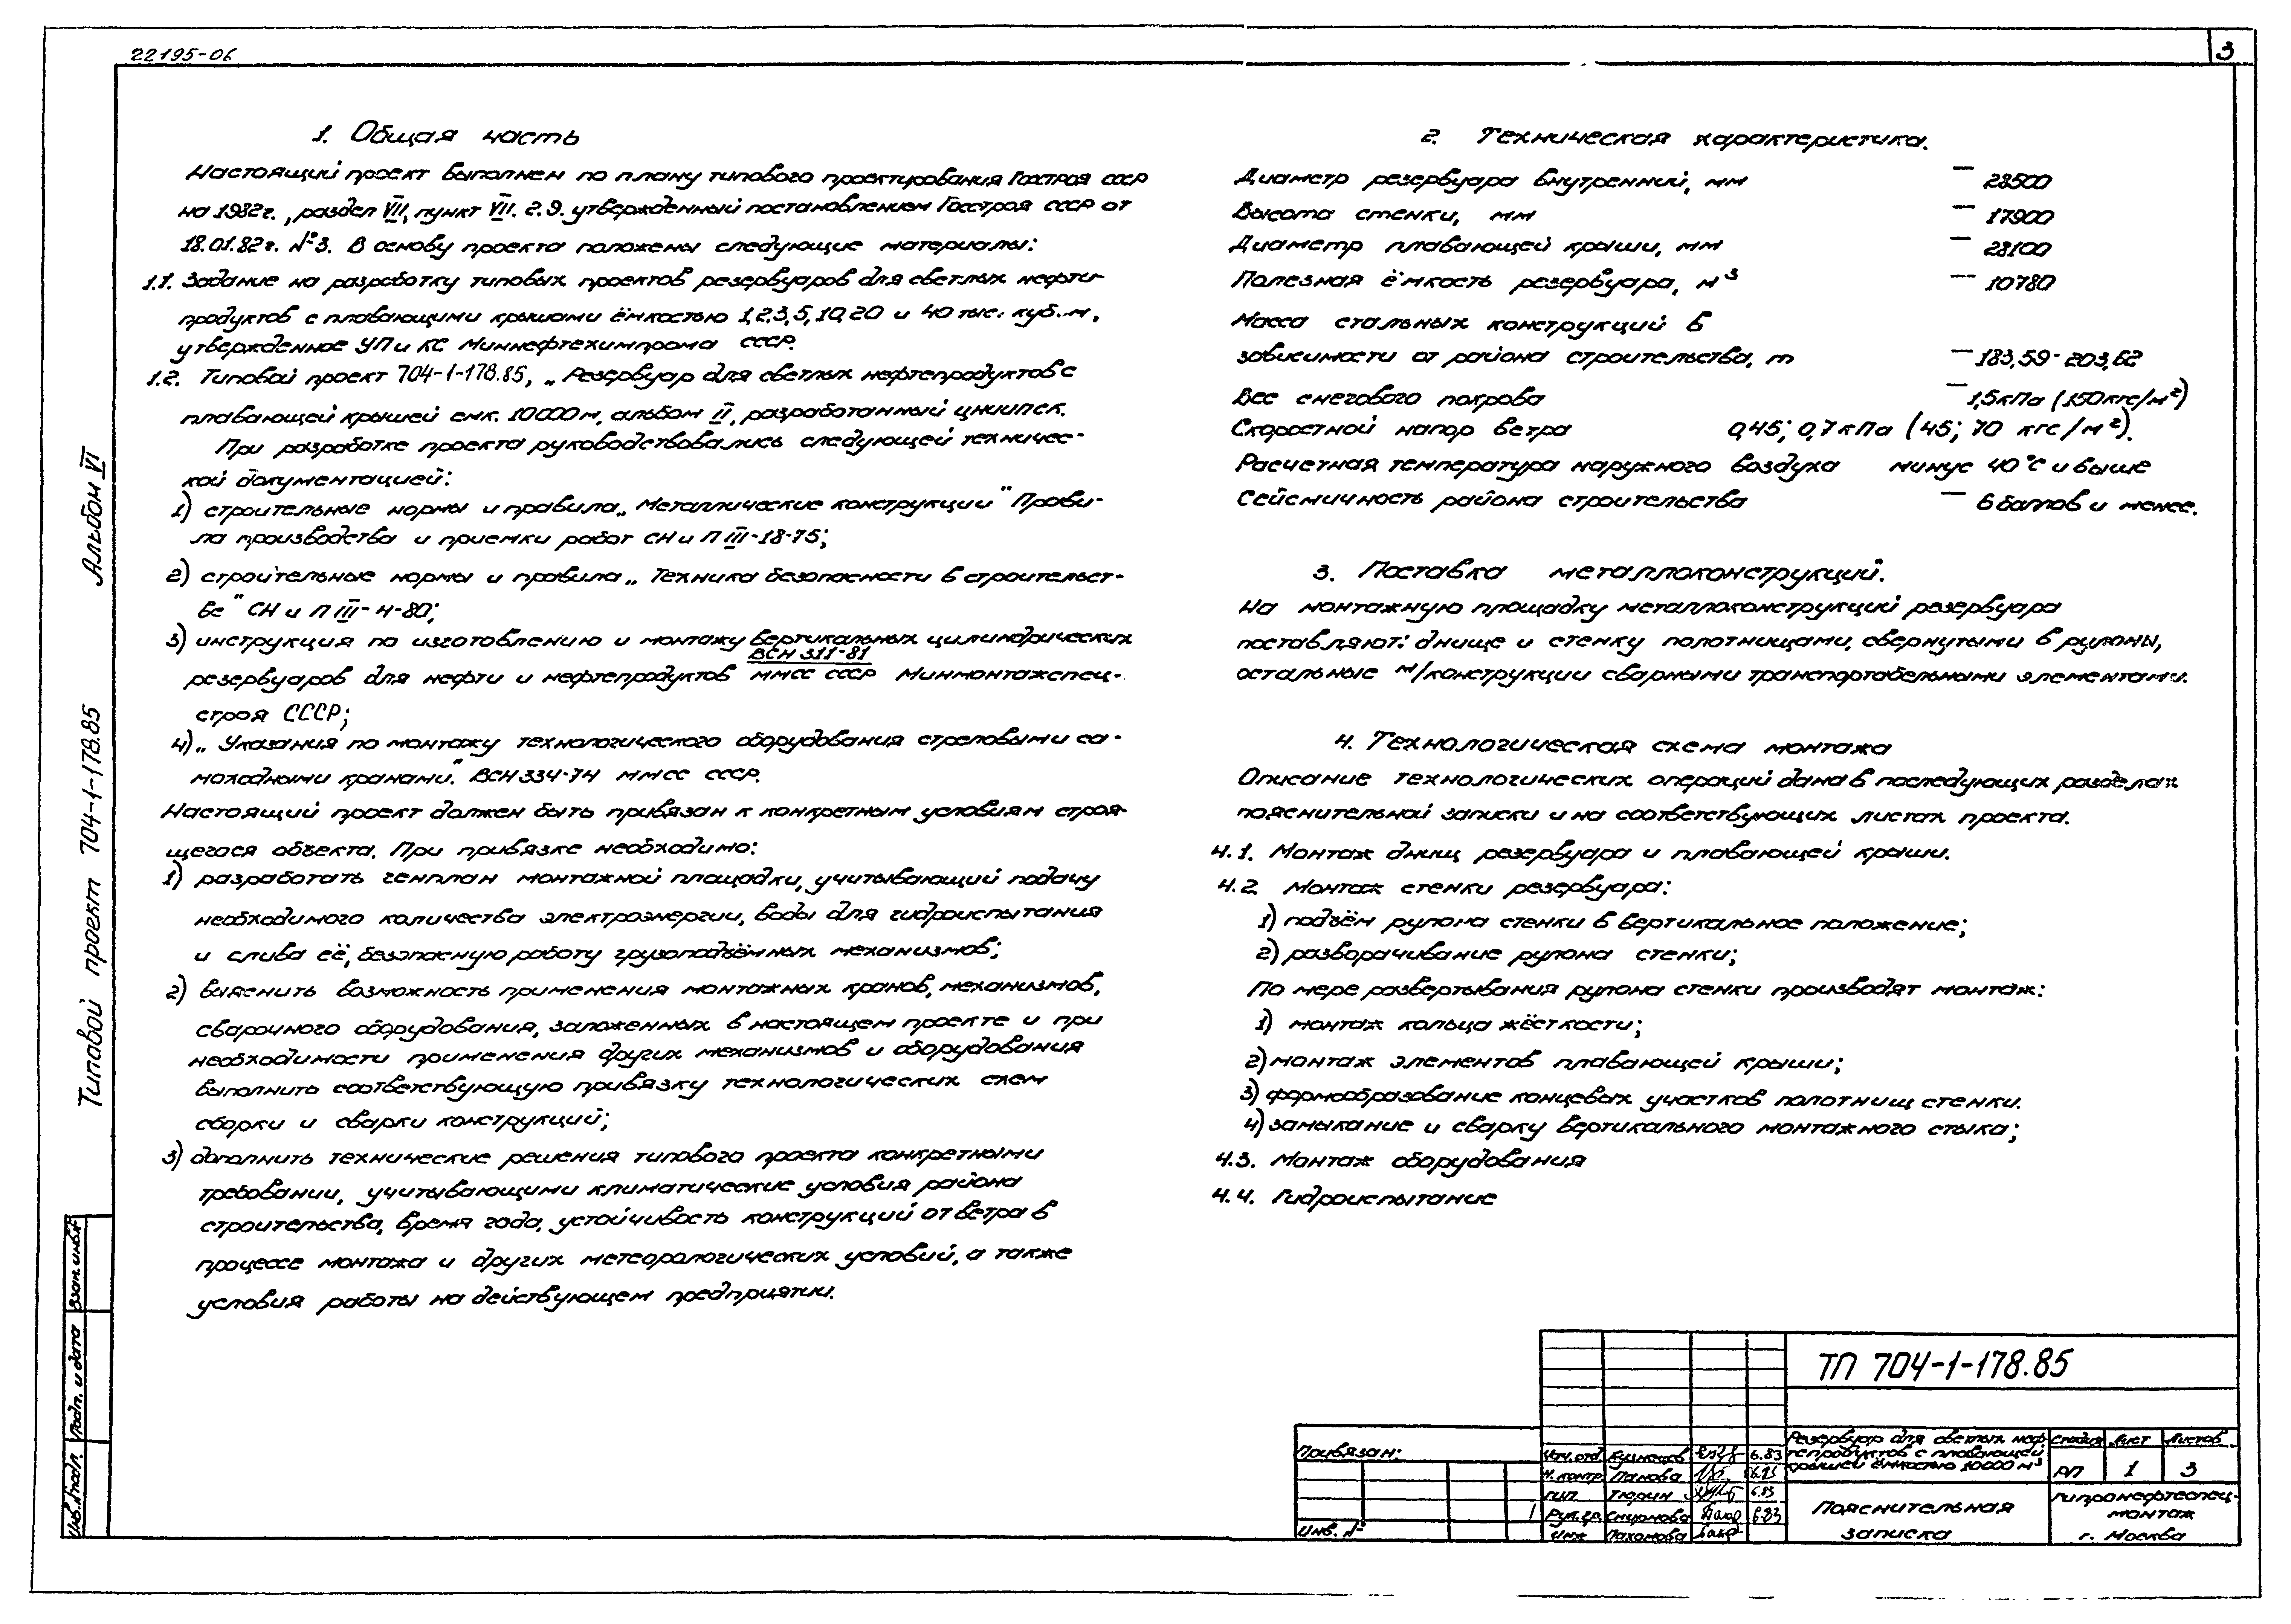 22195-06
3
1. Общая часть
Настоящий проект выполнен по плану типового проектирования Госстроя СССР
на 1982г., раздел VII, пункт VII. 2.9. утвержденный постановлением Госстроя СССР от
18.01.82г. №3. В основу проекта положены следующие материалы:
1.1. Задание на разработку типовых проектов резервуаров для светлых нефте-
продуктов с плавающими крышами ёмкостью 1,2,3,5,10,20 и 40 тыс. куб.м,
утвержденное УП и КС Миннефтехимпрома СССР.
1.2. Типовой проект 704-1-178.85, „Резервуар для светлых нефтепродуктов с
плавающей крышей емк. 10000м, альбом II, разработанный ЦНИИПСК.
При разработке проекта руководствовались следующей техничес-
кой документацией:
1) строительные нормы и правила „Металлические конструкции" Прави-
ла производства и приемки работ СН и П III-18-75;
2) строительные нормы и правила „Техника безопасности в строительст-
ве" СН и П III-4-80;
3) инструкция по изготовлению и монтажу вертикальных цилиндрических
резервуаров для нефти и нефтепродуктов ВСН 311-81 ММСС СССР Минмонтажспец-
строя СССР;
4) „Указания по монтажу технологического оборудования стреловыми са-
моходными кранами." ВСН 334-74 ММСС СССР.
Настоящий проект должен быть привязан к конкретным условиям строя-
щегося объекта. При привязке необходимо:
1) разработать генплан монтажной площадки, учитывающий подачу
необходимого количества электроэнергии, воды для гидроиспытания
и слива её, безопасную работу грузоподъёмных механизмов;
2) выяснить возможность применения монтажных кранов, механизмов,
сварочного оборудования, заложенных в настоящем проекте и при
необходимости применения других механизмов и оборудования
выполнить соответствующую привязку технологических схем
сборки и сварки конструкций;
3) дополнить технические решения типового проекта конкретными
требовании, учитывающими климатические условия района
строительства, время года, устойчивость конструкций от ветра в
процессе монтажа и других метеорологических условий, а также
условия работы на действующем предприятии.
2. Техническая характеристика.
Диаметр резервуара внутренний, мм — 28500
Высота стенки, мм — 17900
Диаметр плавающей крыши, мм — 28100
Полезная ёмкость резервуара, м³ — 10780
Масса стальных конструкций в
зависимости от района строительства, т — 183,59-203,62
Вес снегового покрова — 1,5кПа (150кгс/м²)
Скоростной напор ветра 0,45; 0,7кПа (45; 70 кгс/м²).
Расчетная температура наружного воздуха минус 40°С и выше
Сейсмичность района строительства — 6 баллов и менее.
3. Поставка металлоконструкций.
На монтажную площадку металлоконструкций резервуара
поставляют: днище и стенку полотнищами, свернутыми в рулоны,
остальные м/конструкции сварными транспортабельными элементами.
4. Технологическая схема монтажа
Описание технологических операций дана в последующих разделах
пояснительной записки и на соответствующих листах проекта.
4.1. Монтаж днищ резервуара и плавающей крыши.
4.2. Монтаж стенки резервуара:
1) подъём рулона стенки в вертикальное положение;
2) разворачивание рулона стенки;
По мере развертывания рулона стенки производят монтаж:
1) монтаж кольца жёсткости;
2) монтаж элементов плавающей крыши;
3) формообразование концевых участков полотнищ стенки.
4) замыкание и сварку вертикального монтажного стыка;
4.3. Монтаж оборудования
4.4. Гидроиспытание
Типовой проект 704-1-178.85 Альбом VI
Взам. инв.№
Подп. и дата
Инв.№подл.
Привязан:
Инв. №
1
Нач. отд. Кузнецов 6.83
Н. контр. Панова 6.83
ГИП Тюрин 6.83
Рук. гр. Смирнова 6.83
Инж. Пахомова
ТП 704-1-178.85
Резервуар для светлых неф-
тепродуктов с плавающей
крышей ёмкостью 10000 м³
Стадия Лист Листов
РП 1 3
Пояснительная
записка
Гипронефтеспец-
монтаж
г. Москва